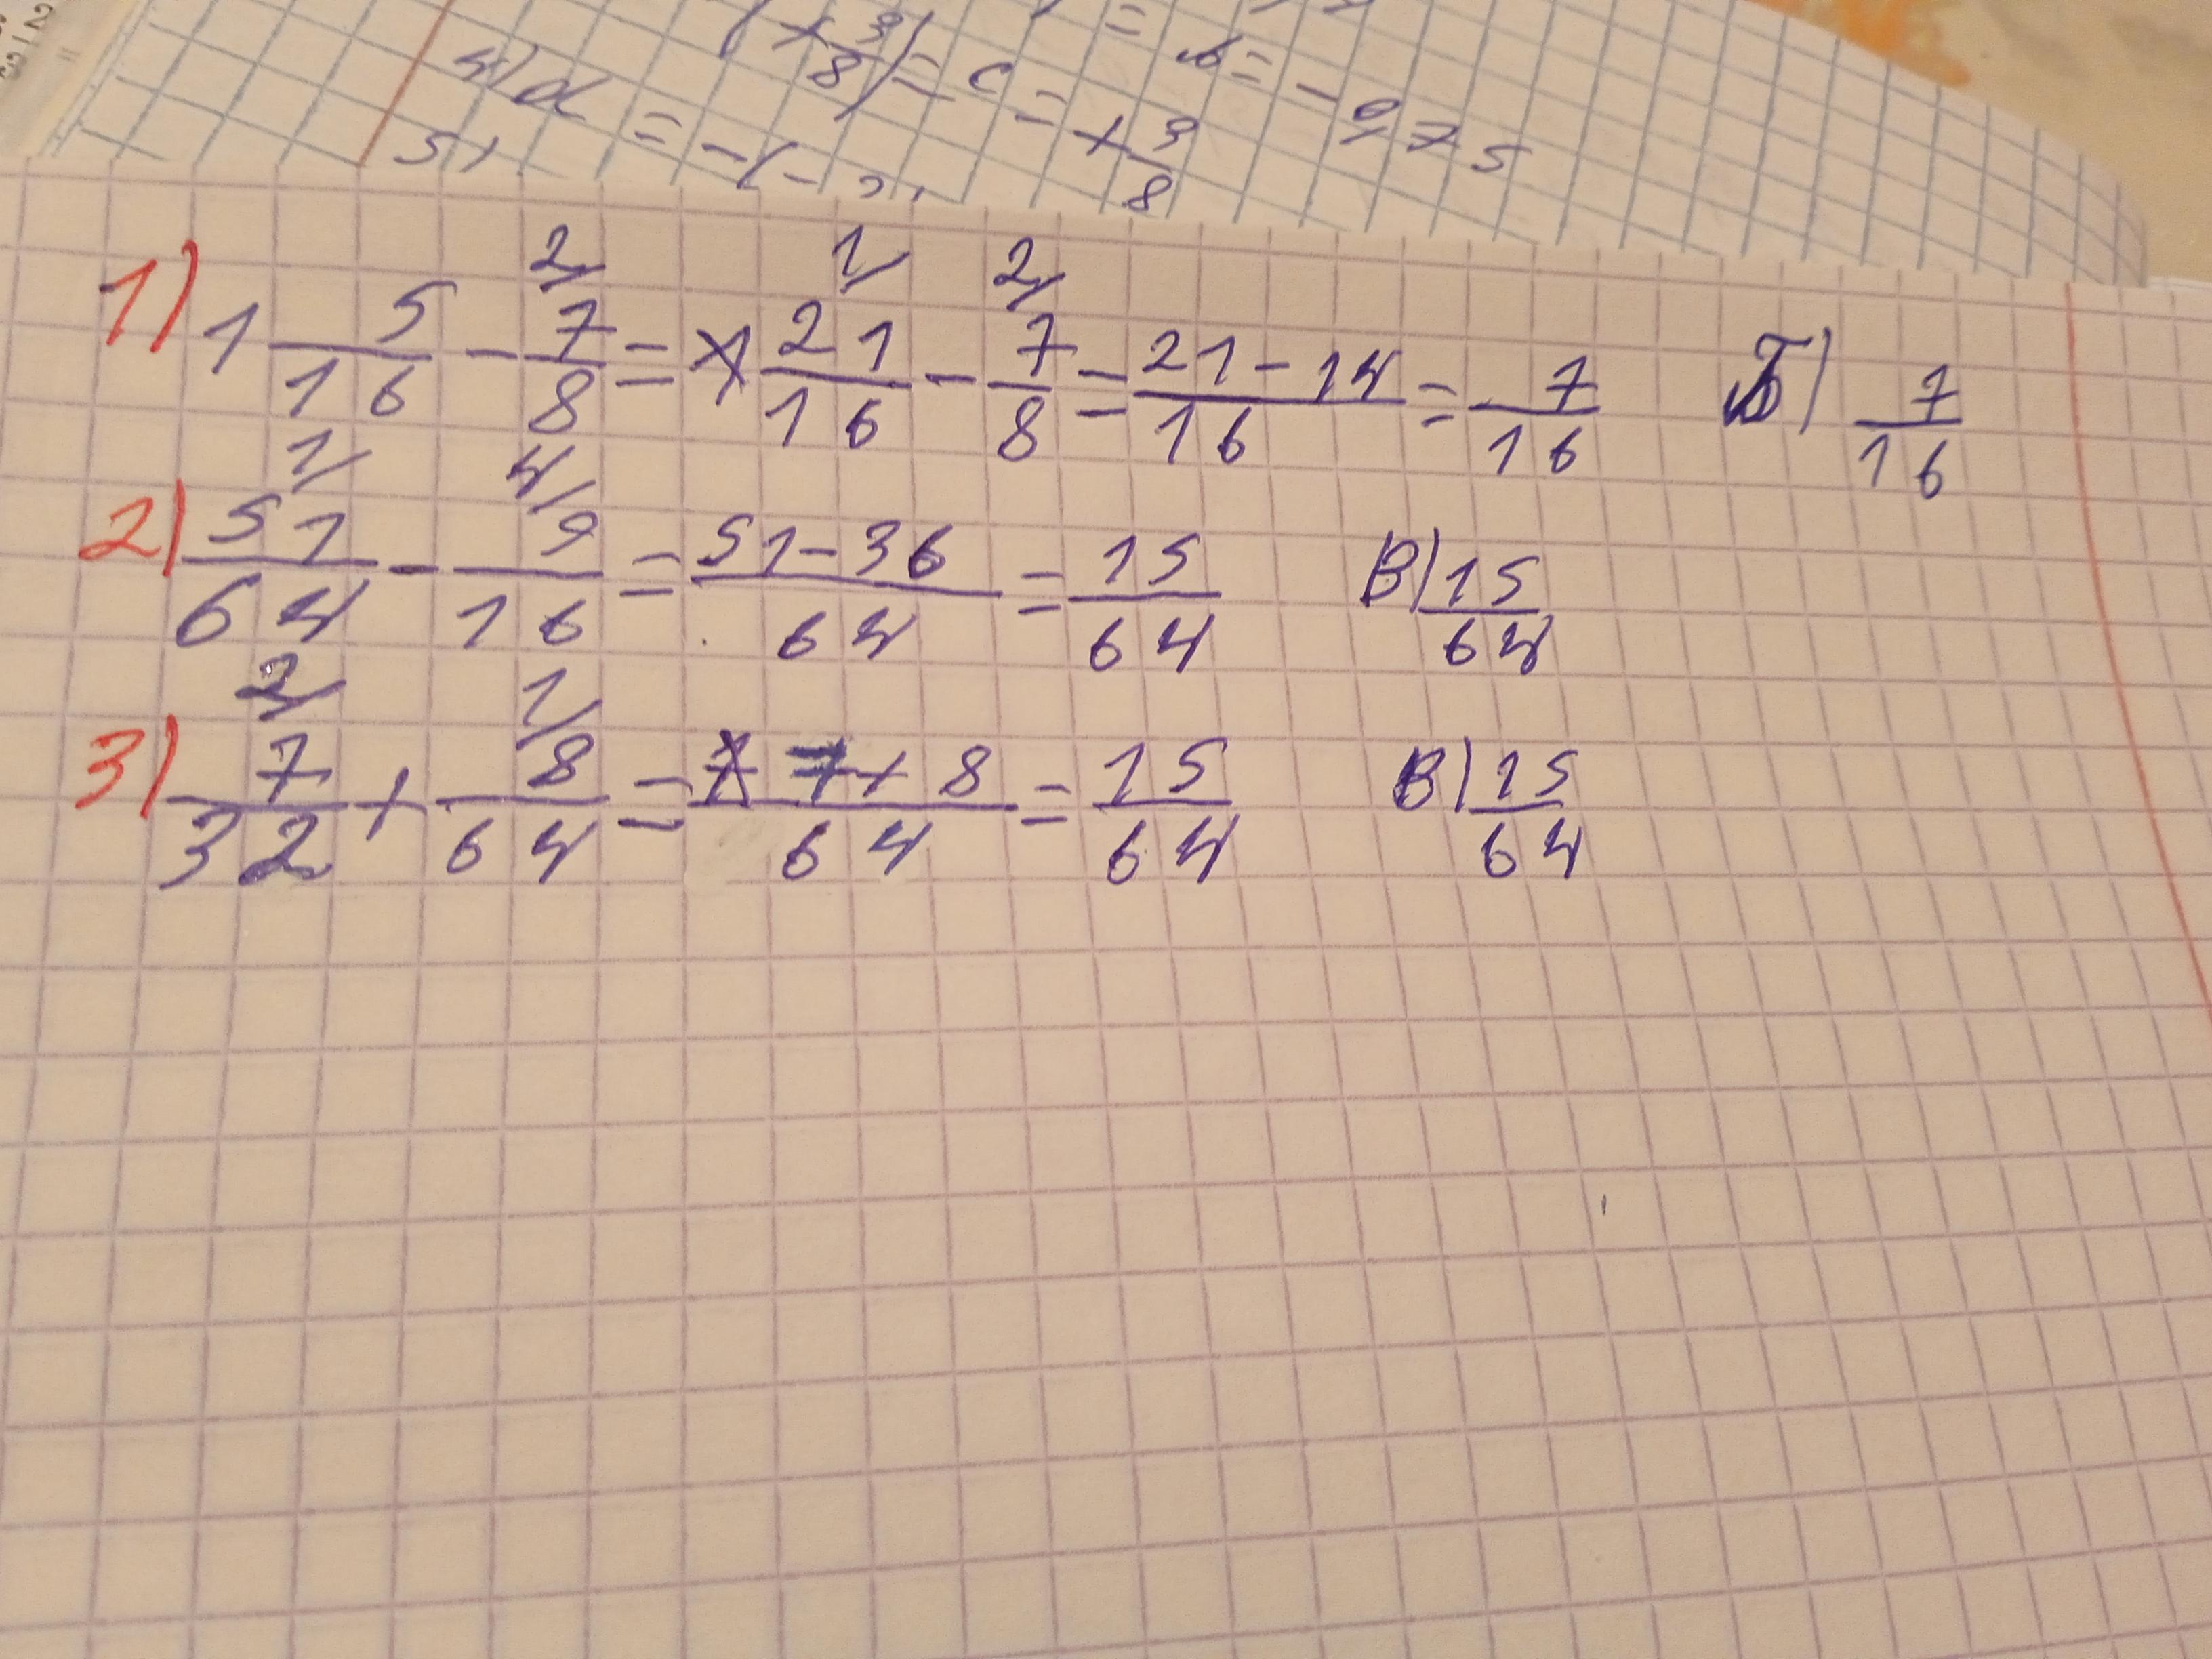 + 3/8) = c = + 3/8
= b = - 0,75
4) d = -(-
5)
1) 1 5/16 - 7/8 = 21/16 - 7/8 = 21-14/16 = 7/16 Б) 7/16
2) 51/64 - 9/16 = 51-36/64 = 15/64 В) 15/64
3) 7/32 + 8/64 = 7+8/64 = 15/64 В) 15/64